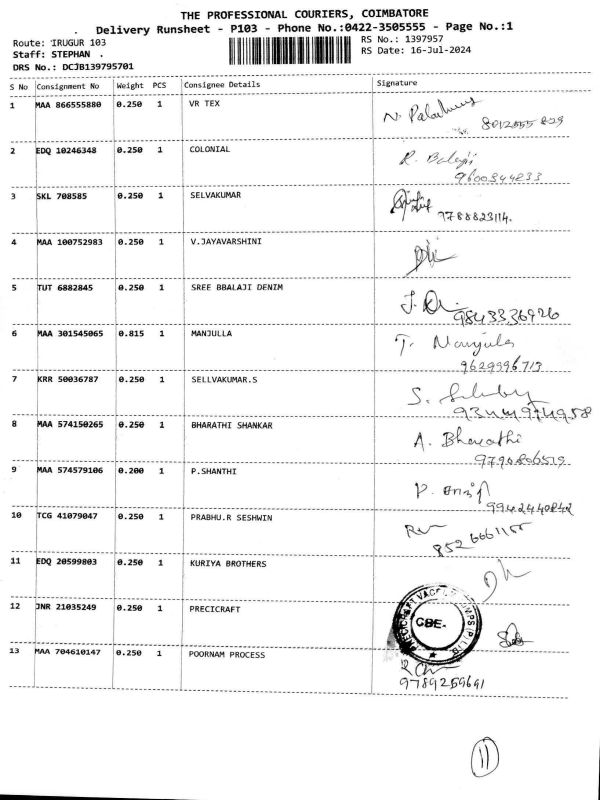 THE PROFESSIONAL COURIERS, COIMBATORE
Delivery Runsheet - P103 - Phone No.:0422-3505555 - Page No.:1
Route: IRUGUR 103
RS No.: 1397957
Staff: STEPHAN .
RS Date: 16-Jul-2024
DRS No.: DCJB139795701
S No Consignment No Weight PCS Consignee Details Signature
1 MAA 866555880 0.250 1 VR TEX
2 EDQ 10246348 0.250 1 COLONIAL R. Balaji
9600344833
3 SKL 708585 0.250 1 SELVAKUMAR
9788823114.
4 MAA 100752983 0.250 1 V.JAYAVARSHINI
5 TUT 6882845 0.250 1 SREE BBALAJI DENIM
9843336926
6 MAA 301545065 0.815 1 MANJULLA T. Manjula
9629996713
7 KRR 50036787 0.250 1 SELLVAKUMAR.S
8 MAA 574150265 0.250 1 BHARATHI SHANKAR A. Bharathi
9790806519
9 MAA 574579106 0.200 1 P.SHANTHI
9942440842
10 TCG 41079047 0.250 1 PRABHU.R SESHWIN
11 EDQ 20599803 0.250 1 KURIYA BROTHERS
12 JNR 21035249 0.250 1 PRECICRAFT CBE.
13 MAA 704610147 0.250 1 POORNAM PROCESS
9789259691
11